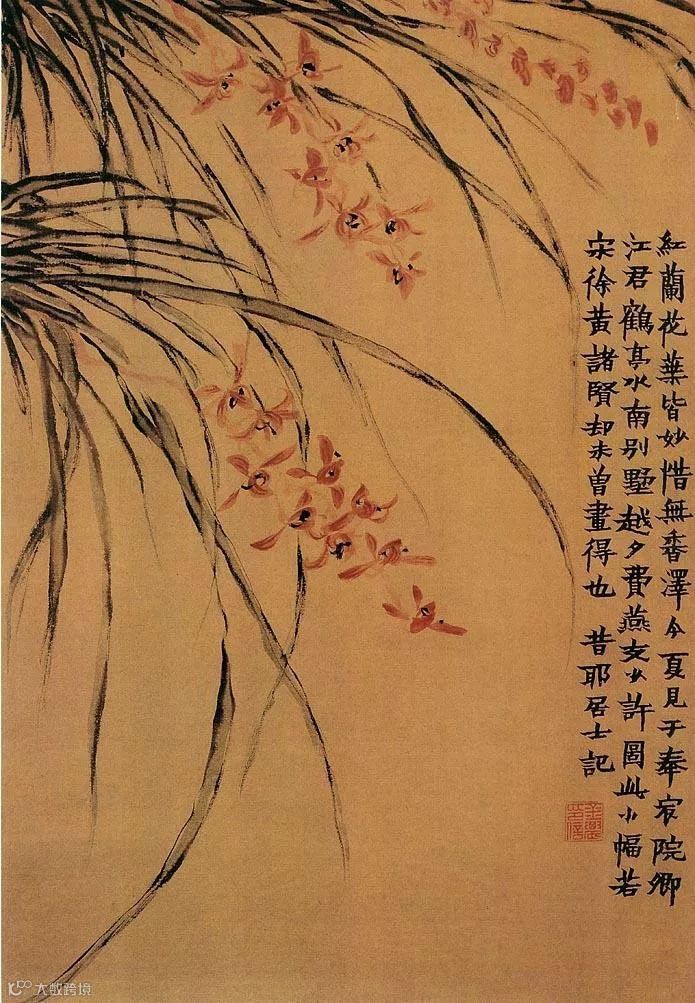 紅蘭花葉皆妙惜無香澤今夏見于奉宸院卿
江君鶴亭水南别墅越夕費燕支少許圖此小幅若
宋徐黃諸賢却未曾畫得也 昔耶居士記
大数跨境